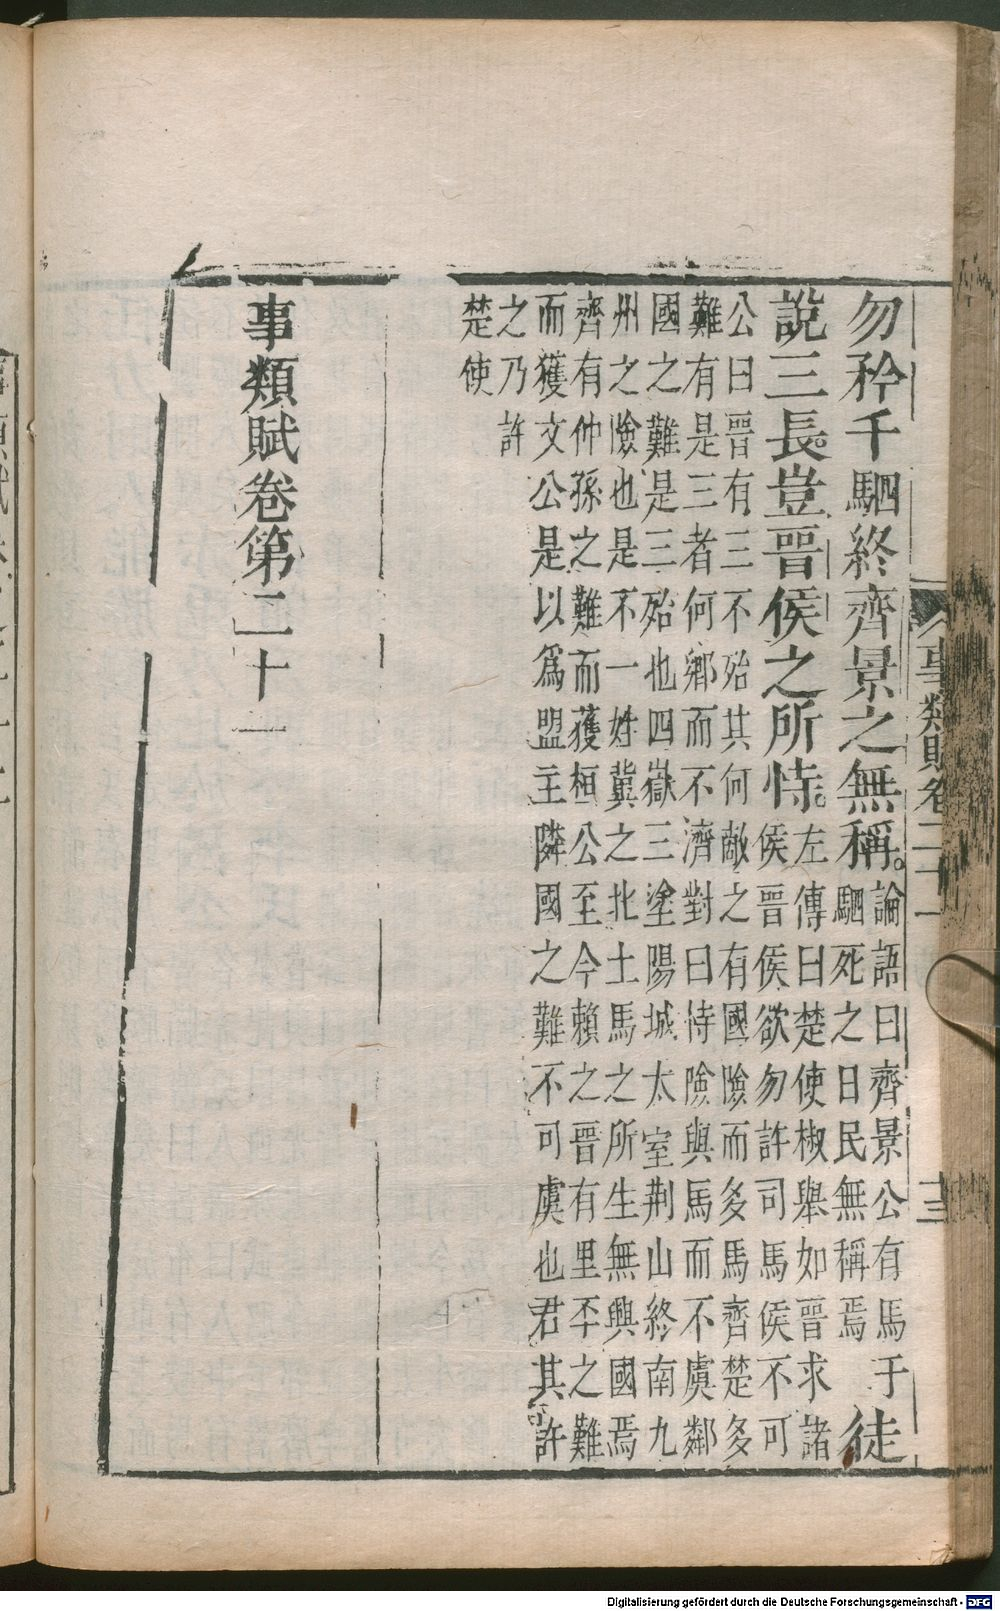 事類賦卷二十一
十三
勿矜千駟終齊景之無稱。
論語曰齊景公有馬千
駟死之日民無稱焉
徒
說三長。豈晉侯之所恃。
左傳曰楚使椒舉如晉求諸
侯晉侯欲勿許司馬侯不可
公曰晉有三不殆其何敵之有國險而多馬齊楚多
難有是三者何鄉而不濟對曰恃險與馬而不虞鄰
國之難是三殆也四嶽三塗陽城太室荆山終南九
州之險也是不一姓冀之北土馬之所生無興國焉
齊有仲孫之難而獲桓公至今賴之晉有里丕之難
而獲文公是以爲盟主隣國之難不可虞也君其許
之乃許
楚使
事類賦卷第二十一
Digitalisierung gefördert durch die Deutsche Forschungsgemeinschaft - DFG